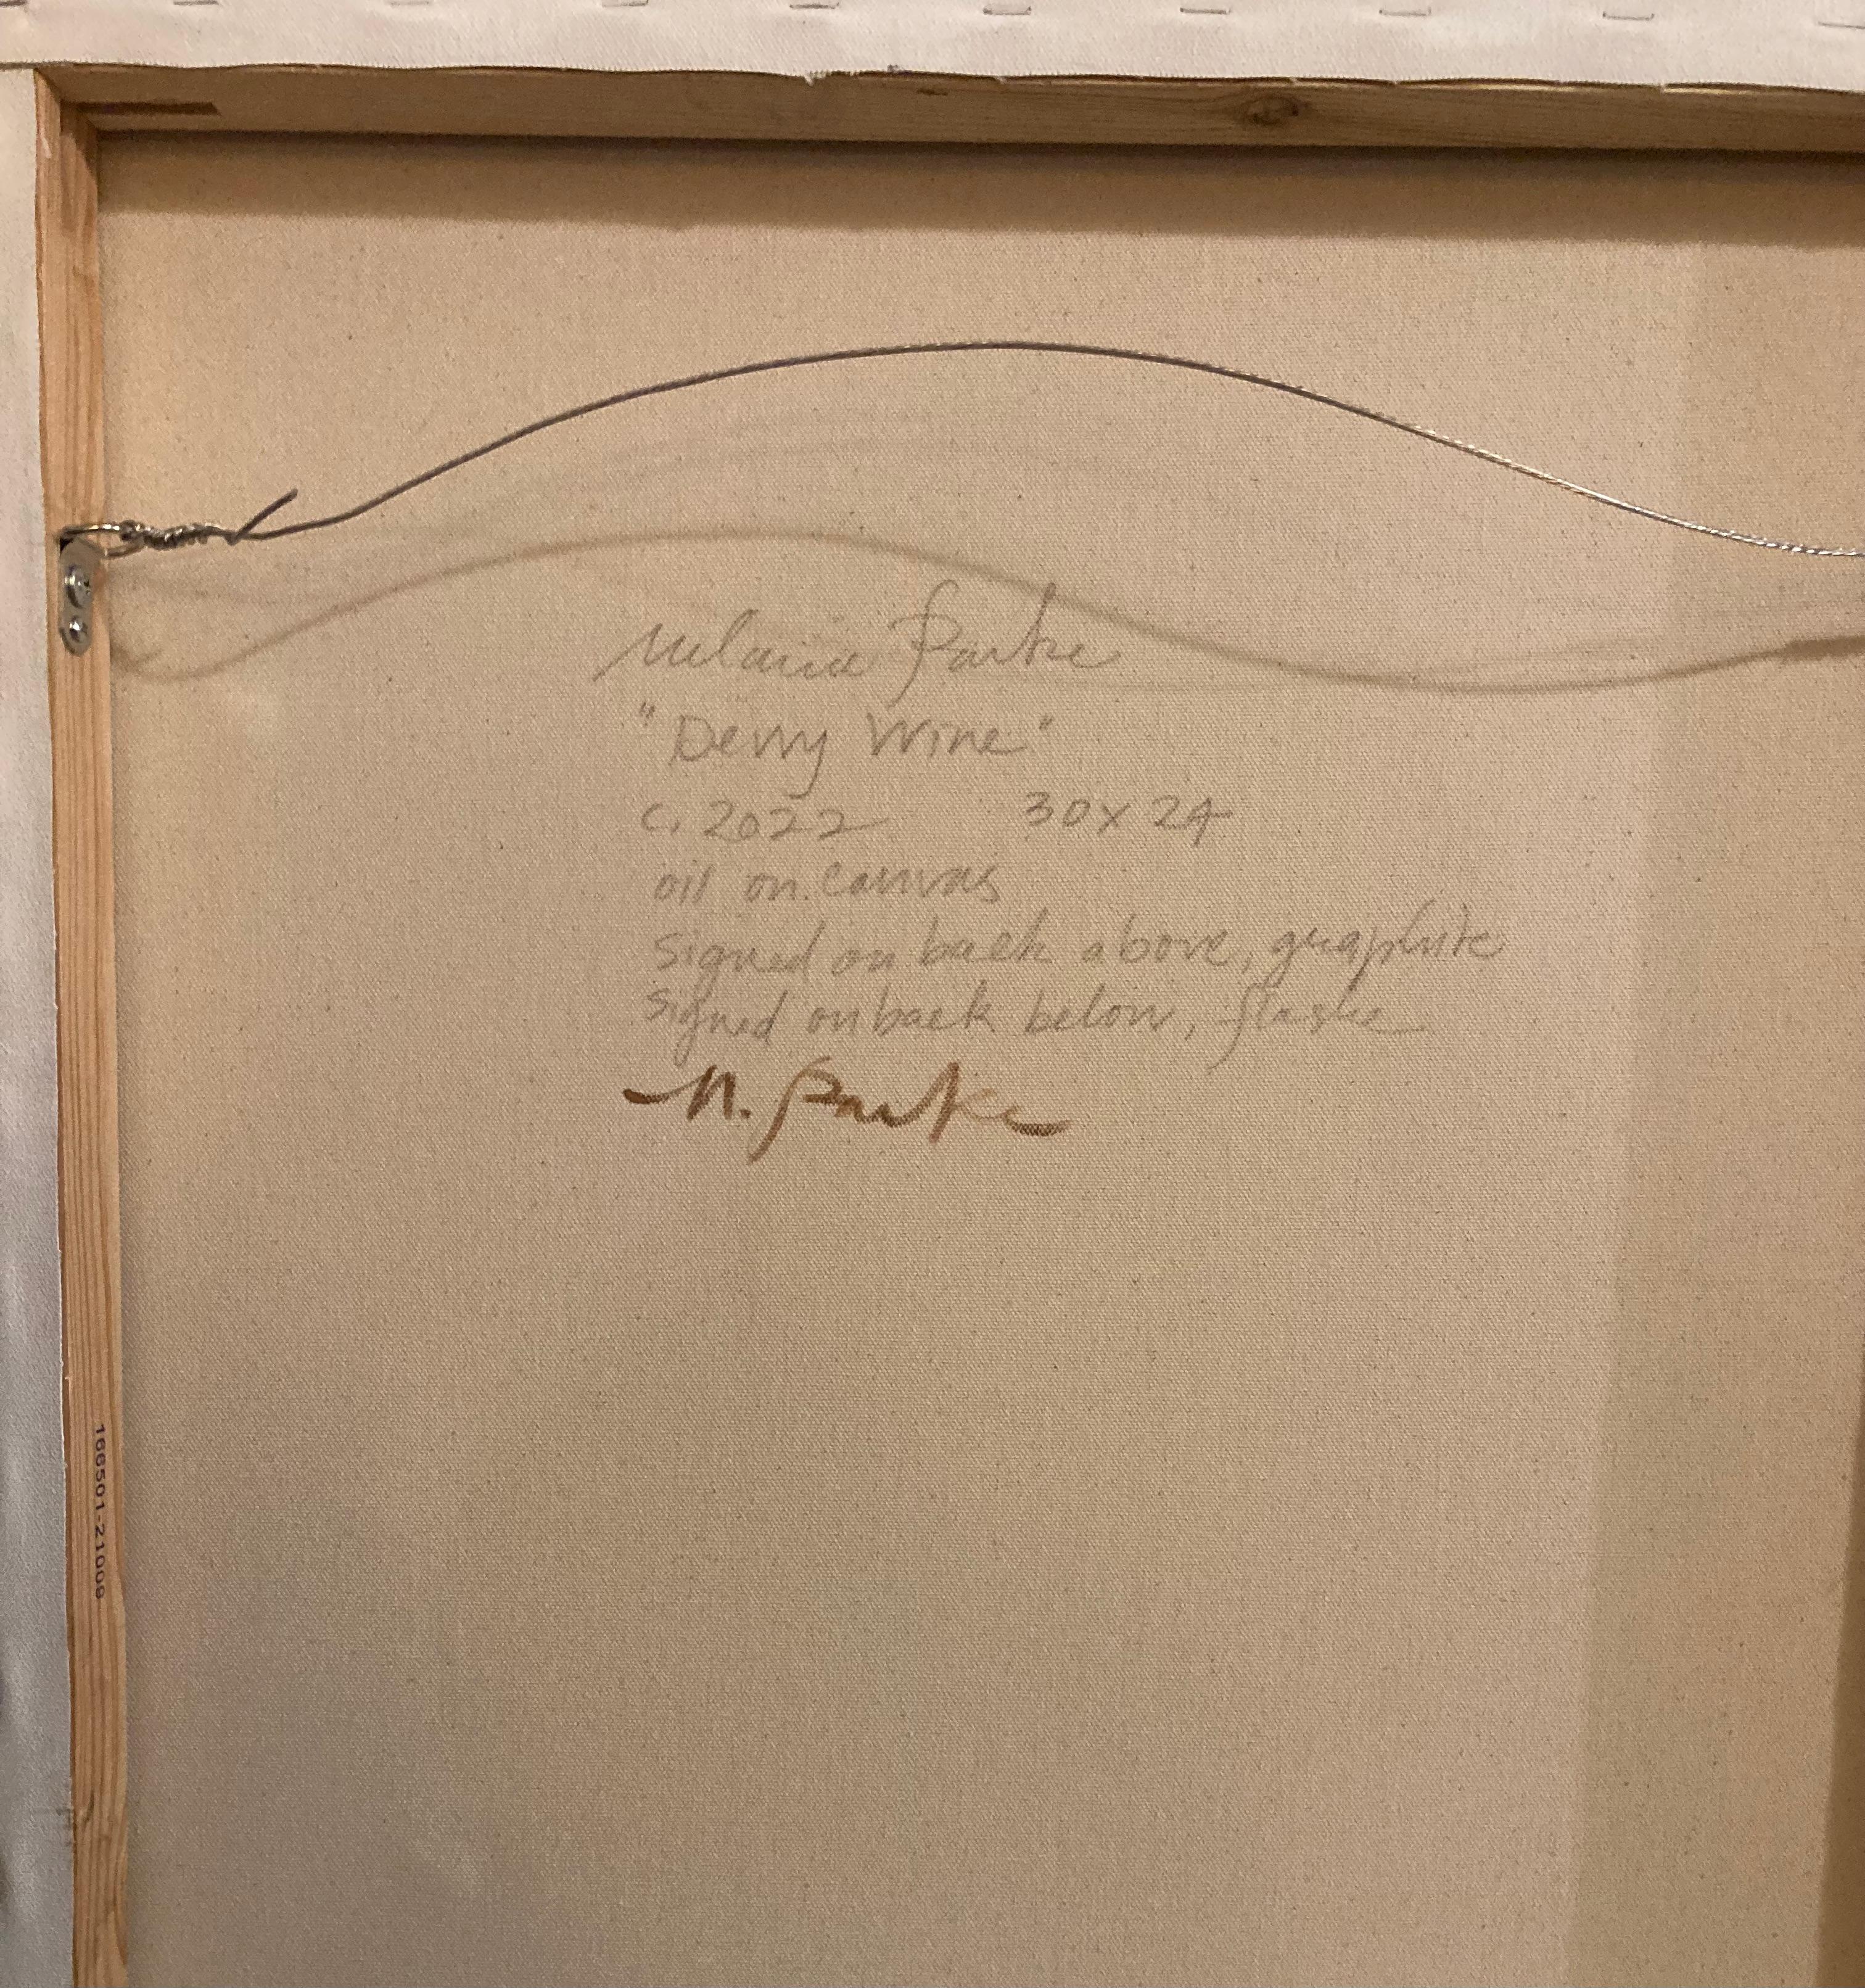 Melanie Parke
"Dewy Wine"
c. 2022 30x24
oil on canvas
signed on back above, graphite
signed on back below, flashe
M. Parke
166501-21009